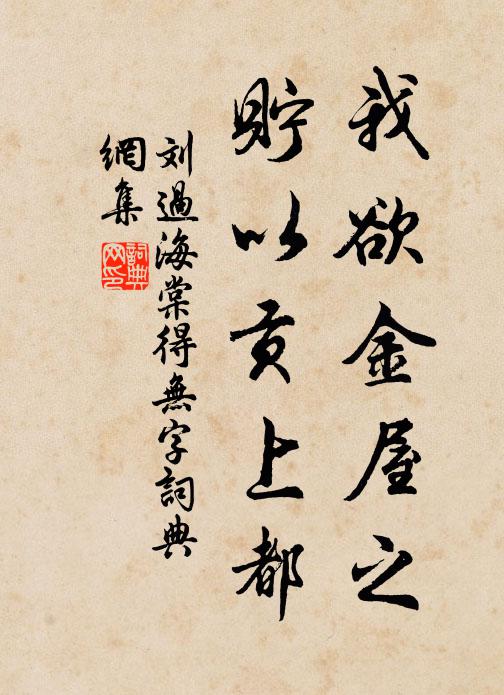 我欲金屋之
貯以貢上都
刘過海棠得無字詞典
網集
詞典
网印